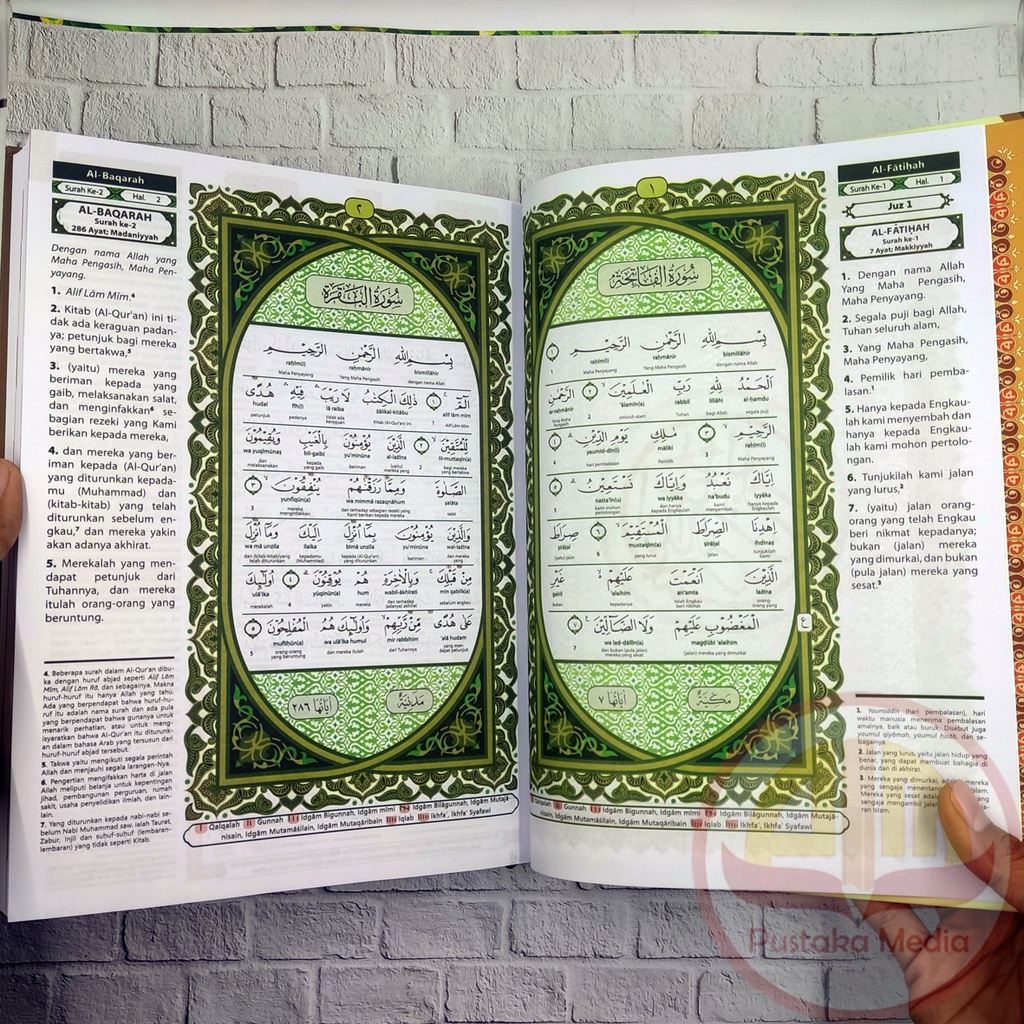 Al-Fātiḥah
Surah Ke-1
Hal. 1
Juz 1
AL-FĀTIḤAH
Surah ke-1
7 Ayat; Makkiyyah
1. Dengan nama Allah
Yang Maha Pengasih,
Maha Penyayang.
2. Segala puji bagi Allah,
Tuhan seluruh alam,
3. Yang Maha Pengasih,
Maha Penyayang,
4. Pemilik hari pemba-
lasan.¹
5. Hanya kepada Engkau-
lah kami menyembah dan
hanya kepada Engkau-
lah kami mohon pertolo-
ngan.
6. Tunjukilah kami jalan
yang lurus,²
7. (yaitu) jalan orang-
orang yang telah Engkau
beri nikmat kepadanya;
bukan (jalan) mereka
yang dimurkai, dan bukan
(pula jalan) mereka yang
sesat.³
١
سُورَةُ الْفَاتِحَةِ
بِسْمِ اللّٰهِ الرَّحْمٰنِ الرَّحِيْمِ ١
bismillāhir raḥmānir raḥīm(i)
dengan nama Allah Yang Maha Pengasih Maha Penyayang
اَلْحَمْدُ لِلّٰهِ رَبِّ الْعٰلَمِيْنَ ٢ الرَّحْمٰنِ
al-ḥamdu lillāhi rabbil ‘ālamīn(a) ar-raḥmānir
segala puji bagi Allah Tuhan seluruh alam 2 Yang Maha Pengasih
الرَّحِيْمِ ٣ مٰلِكِ يَوْمِ الدِّيْنِ ٤
raḥīm(i) māliki yaumid-dīn(i)
Maha Penyayang 3 Pemilik hari pembalasan 4
اِيَّاكَ نَعْبُدُ وَاِيَّاكَ نَسْتَعِيْنُ ٥
iyyāka na‘budu wa iyyāka nasta‘īn(u)
hanya kepada Engkaulah kami menyembah dan hanya kepada Engkaulah kami mohon pertolongan 5
اِهْدِنَا الصِّرَاطَ الْمُسْتَقِيْمَ ٦ صِرَاطَ
ihdinaṣ ṣirāṭal mustaqīm(a) ṣirāṭal
tunjukilah kami jalan yang lurus 6 (yaitu) jalan
الَّذِيْنَ اَنْعَمْتَ عَلَيْهِمْ غَيْرِ
lażīna an‘amta ‘alaihim gairil
orang-orang yang telah Engkau beri nikmat kepadanya bukan
الْمَغْضُوْبِ عَلَيْهِمْ وَلَا الضَّاۤلِّيْنَ ٧
magḍūbi ‘alaihim wa laḍ-ḍāllīn(a)
(jalan) mereka yang dimurkai dan bukan (pula jalan) mereka yang sesat 7
ع
مَكِّيَّة
اٰيَاتُهَا ٧
1. Youmiddīn (hari pembalasan), hari
waktu manusia menerima pembalasan
amalnya, baik atau buruk. Disebut juga
yaumul qiyāmah, yaumul ḥisāb, dan se-
bagainya.
2. Jalan yang lurus, yaitu jalan hidup yang
benar, yang dapat membuat bahagia di
dunia dan di akhirat.
3. Mereka yang dimurkai, adalah mereka
yang sengaja menentang
Mereka yang sesat adalah
sengaja mengambil jalan
ran Islam.
Qalqalah Gunnah Idgām Bigunnah, Idgām mimi Idgām Bilāgunnah, Idgām Mutajā-
nisain, Idgām Mutamāsilain, Idgām Mutaqāribain Iqlab Ikhfa’, Ikhfa’ Syafawi
Al-Baqarah
Surah Ke-2
Hal. 2
AL-BAQARAH
Surah ke-2
286 Ayat; Madaniyyah
Dengan nama Allah yang
Maha Pengasih, Maha Pen-
yayang.
1. Alif Lām Mīm.⁴
2. Kitab (Al-Qur'an) ini ti-
dak ada keraguan padan-
ya; petunjuk bagi mereka
yang bertakwa,⁵
3. (yaitu) mereka yang
beriman kepada yang
gaib, melaksanakan salat,
dan menginfakkan⁶ se-
bagian rezeki yang Kami
berikan kepada mereka,
4. dan mereka yang ber-
iman kepada (Al-Qur'an)
yang diturunkan kepada-
mu (Muhammad) dan
(kitab-kitab) yang telah
diturunkan sebelum en-
gkau,⁷ dan mereka yakin
akan adanya akhirat.
5. Merekalah yang men-
dapat petunjuk dari
Tuhannya, dan mereka
itulah orang-orang yang
beruntung.
٢
سُورَةُ الْبَقَرَةِ
بِسْمِ اللّٰهِ الرَّحْمٰنِ الرَّحِيْمِ
bismillāhir raḥmānir raḥīm(i)
dengan nama Allah Yang Maha Pengasih Maha Penyayang
الۤمّۤ ١ ذٰلِكَ الْكِتٰبُ لَا رَيْبَ فِيْهِ هُدًى
alif lām mīm żālikal-kitābu lā raiba fīh(i) hudal
Alif Lām Mīm 1 Kitab (Al-Qur'an) ini tidak ada keraguan padanya petunjuk
لِّلْمُتَّقِيْنَ ٢ الَّذِيْنَ يُؤْمِنُوْنَ بِالْغَيْبِ وَيُقِيْمُوْنَ
lil-muttaqīn(a) al-lażīna yu’minūna bil-gaibi wa yuqīmūnaṣ
bagi mereka yang bertakwa 2 (yaitu) mereka yang beriman kepada yang gaib dan melaksanakan
الصَّلٰوةَ وَمِمَّا رَزَقْنٰهُمْ يُنْفِقُوْنَ ٣
ṣalāta wa mimmā razaqnāhum yunfiqūn(a)
salat dan terhadap sebagian rezeki yang Kami berikan kepada mereka mereka menginfakkan 3
وَالَّذِيْنَ يُؤْمِنُوْنَ بِمَآ اُنْزِلَ اِلَيْكَ وَمَآ اُنْزِلَ
wal-lażīna yu’minūna bimā unzila ilaika wa mā unzila
dan mereka yang beriman kepada (Al-Qur'an) yang diturunkan kepadamu (Muhammad) dan (kitab-kitab)yang telah diturunkan
مِنْ قَبْلِكَ وَبِالْاٰخِرَةِ هُمْ يُوْقِنُوْنَ ٤ اُولٰۤىِٕكَ
min qablik(a) wabil-ākhirati hum yūqinūn(a) ulā’ika
sebelum engkau dan terhadap (adanya) akhirat mereka yakin 4 merekalah
عَلٰى هُدًى مِّنْ رَّبِّهِمْ وَاُولٰۤىِٕكَ هُمُ الْمُفْلِحُوْنَ ٥
‘alā hudam mir rabbihim wa ulā’ika humul mufliḥūn(a)
yang mendapat petunjuk dari Tuhannya dan mereka itulah orang-orang yang beruntung 5
مَدَنِيَّة
اٰيَاتُهَا ٢٨٦
4. Beberapa surah dalam Al-Qur'an dibu-
ka dengan huruf abjad seperti Alif Lām
Mīm, Alif Lām Rā, dan sebagainya. Makna
huruf-huruf itu hanya Allah yang tahu.
Ada yang berpendapat bahwa huruf-hu-
ruf itu adalah nama surah dan ada pula
yang berpendapat bahwa gunanya untuk
menarik perhatian, atau untuk meng-
isyaratkan bahwa Al-Qur'an itu diturunk-
an dalam bahasa Arab yang tersusun dari
huruf-huruf abjad tersebut.
5. Takwa yaitu mengikuti segala perintah
Allah dan menjauhi segala larangan-Nya.
6. Pengertian menginfakkan harta di jalan
Allah meliputi belanja untuk kepentingan
jihad, pembangunan perguruan, rumah
sakit, usaha penyelidikan ilmiah, dan lain-
lain.
7. Yang diturunkan kepada nabi-nabi se-
belum Nabi Muhammad saw. ialah Taurat,
Zabur, Injil dan suhuf-suhuf (lembaran-
lembaran) yang tidak seperti Kitab.
Qalqalah Gunnah Idgām Bigunnah, Idgām mimi Idgām Bilāgunnah, Idgām Mutajā-
nisain, Idgām Mutamāsilain, Idgām Mutaqāribain Iqlab Ikhfa’, Ikhfa’ Syafawi
Pustaka Media